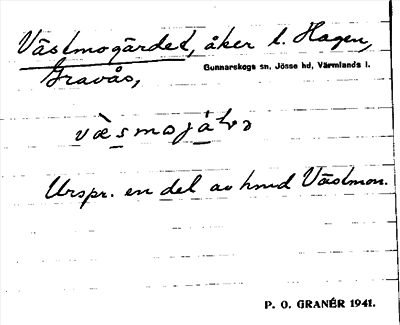 Västmogärdet, åker t. Hagen,
Gravås,
Gunnarskogs sn, Jösse hd, Värmlands l.
Urspr. en del av hmd Västmon.
P. O. GRANÉR 1941.